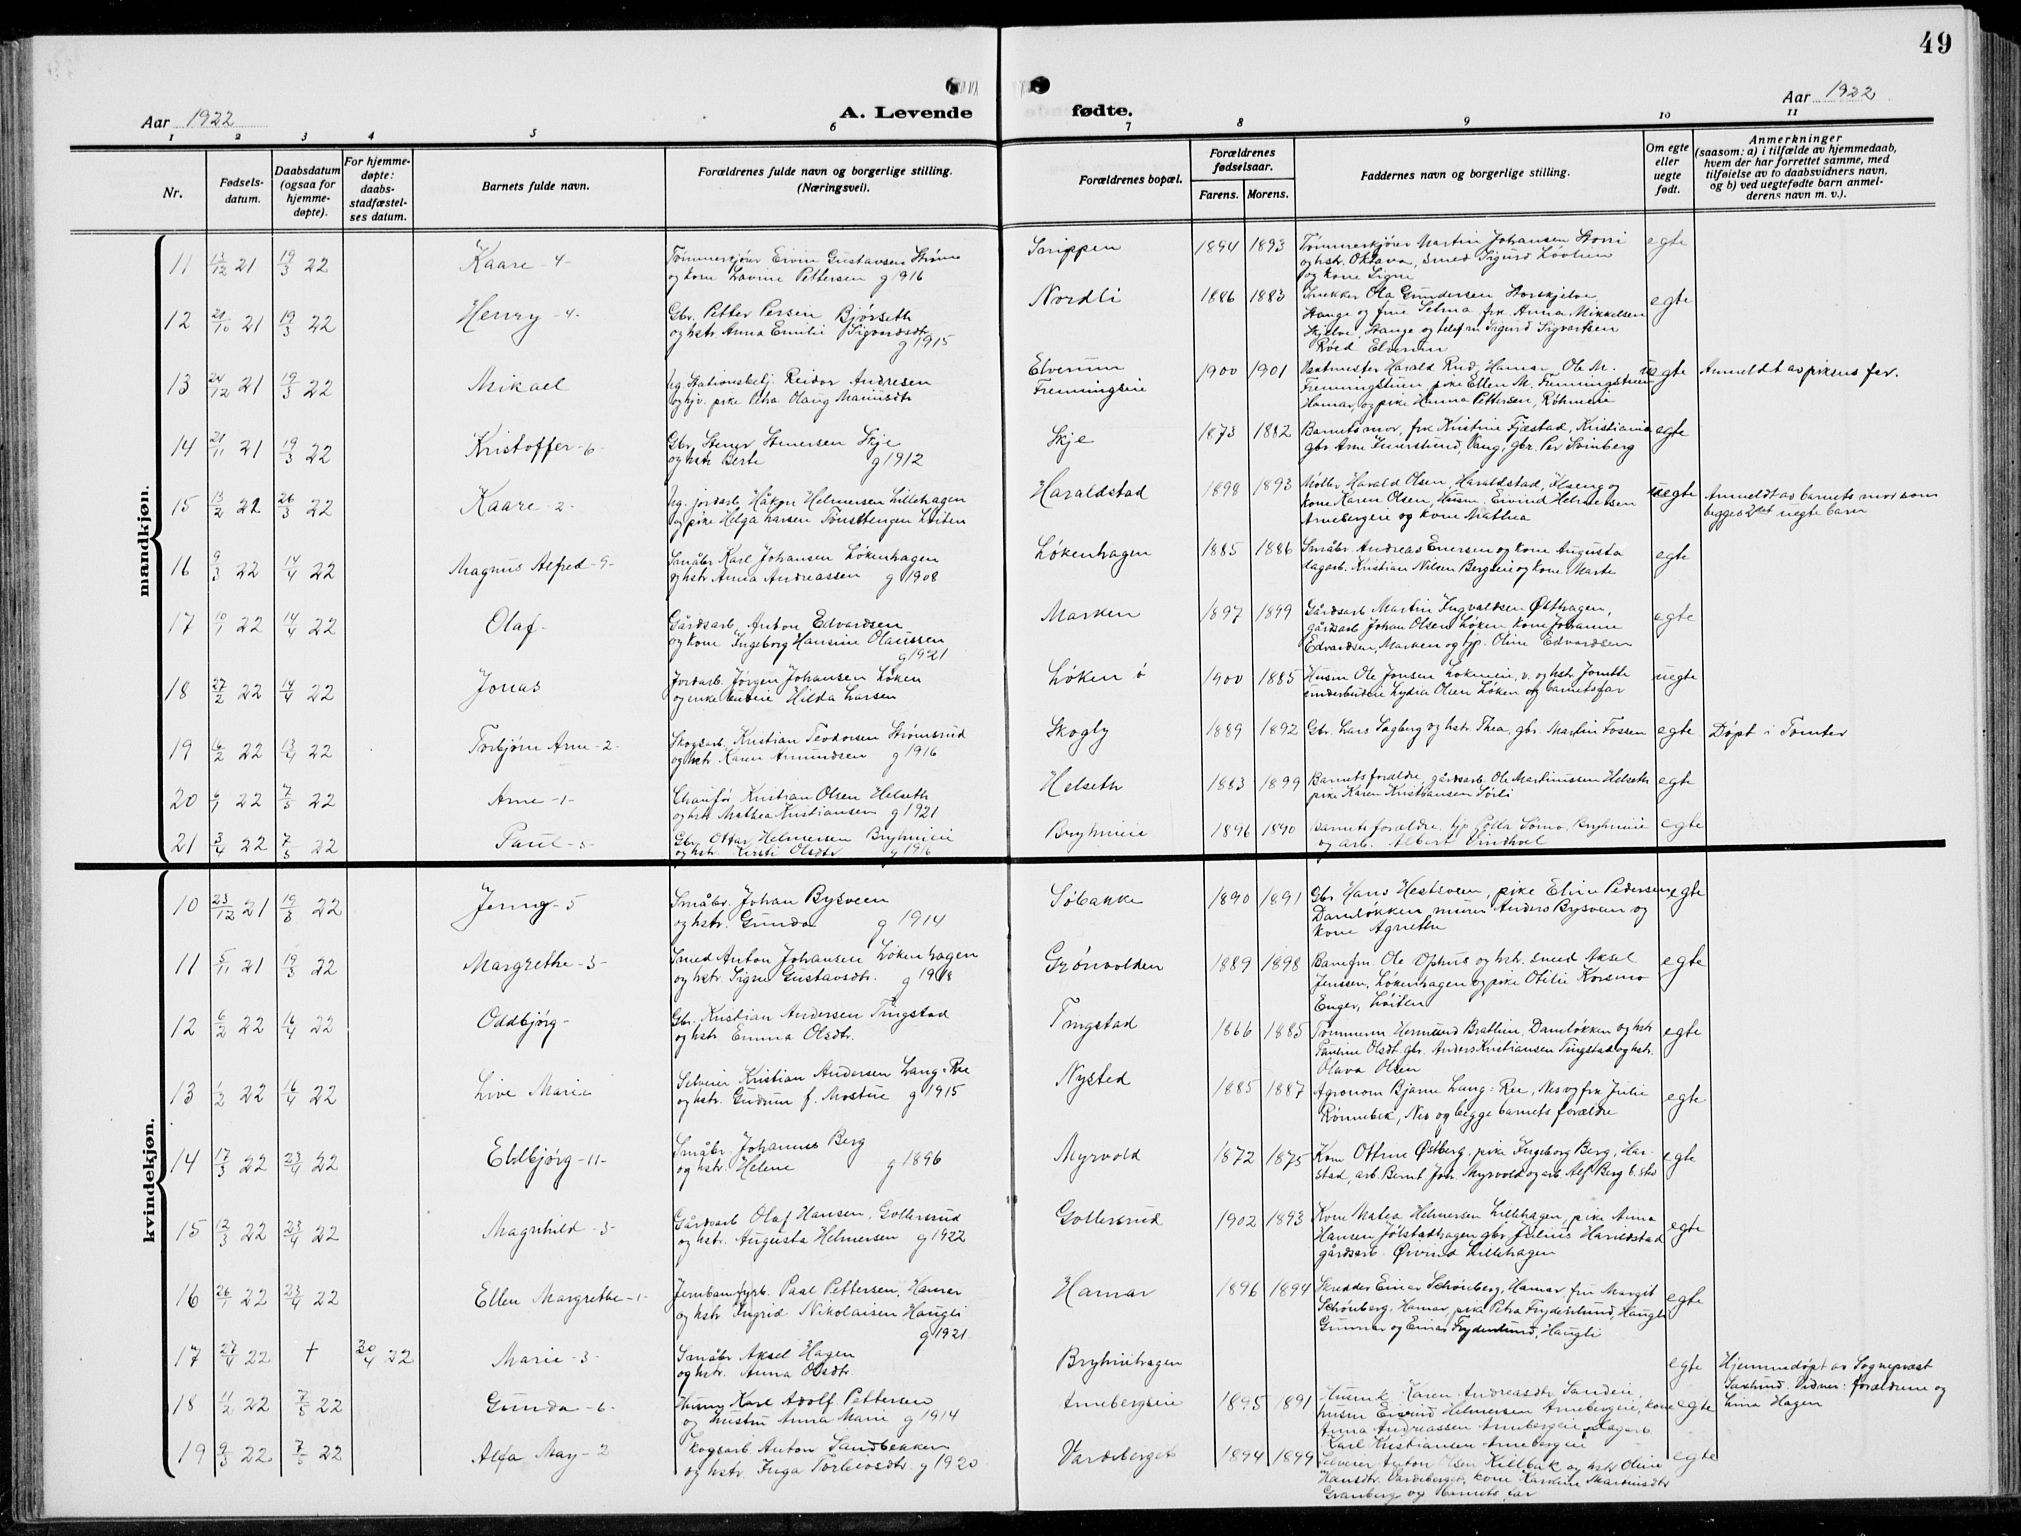 49
Aar 1922
A. Levende
fødte.
Aar 1922
1 2 3 4 5 6 7 8 9 10 11
Nr.
Fødsels-
datum.
Daabsdatum
(ogsaa for
hjemme-
døpte).
For hjemme-
døpte:
daabs-
stadfæstel-
ses datum.
Barnets fulde navn.
Forældrenes fulde navn og borgerlige stilling.
(Næringsvei).
Forældrenes bopæl.
Forældrenes
fødselsaar.
Farens. Morens.
Faddernes navn og borgerlige stilling.
Om egte
eller
uegte
født.
Anmerkninger
(saasom: a) i tilfælde av hjemmedaab,
hvem der har forrettet samme, med
tilføielse av to daabsvidners navn,
og b) ved uegtefødte barn anmel-
derens navn m. v.).
mandkjøn.
11 13/12 21 19/3 22 Kaare - 4 -
Tømmerkjører Ervin Gustavsen Strøms
og kone Lovine Pettersen g 1916
1894 1893
Tømmerkjører Martin Johansen Storri
og hstr. Oktava, smed Sigurd Løvlien
og kone Signe
egte
12 21/10 21 19/3 22 Henry - 4 -
Gbr. Petter Persen Bjørseth
og hstr. Anna Emilie Sigvardsdtr
g 1915
Nordli 1886 1883
Snekker Ola Gundersen Horskjelve
Stange og frue Selma frk. Anna Mikkelsen
Skjelve, Stange og telefon Sigurd Sigvartsen
Røed Elverum
egte
13 24/12 21 19/3 22 Mikael
ug. Stationsbetj. Reidar Andresen
og hjv. pike Petra Olaug Mannsdtr
Elverum
Fremmingseie
1900 1901
Vaktmester Harald Rud, Hamar, Ole M.
Fremmingstuen pike Ellen M. Fremmingstuen
Hamar, og pike Hanna Pettersen,
uegte Anmeldt av pikens far.
14 21/11 21 19/3 22 Kristoffer - 6 -
Gbr. Stener Stenersen Skje
og hstr Berte g 1912
Skje 1873 1882
Barnets mor, frk Kristine Fjæstad, Kristiania
gbr Arne Vang, gbr. Per Svinberg
egte
15 13/2 22 26/3 22 Kaare - 2 -
ug. jordarb. Håkon Helmersen Lillehagen
og pike Helga Larsen Tønsttengen Løiten
Haraldstad 1898 1893
Møller Harald Olsen, Haraldstad, Ilseng og
kone Karen Olsen, Husm. Eivind Helmersen
Arnebergeie og kone Mathea
uegte Anmeldt av barnets mor som
begges 2det uegte barn
16 9/3 22 14/4 22 Magnus Alfred - 9 -
Småbr. Karl Johansen Løkenhagen
og hstr. Anna Andreassen g 1908
Løkenhagen 1885 1886
Småbr. Andreas Enersen og kone Augusta
dagarb. Kristian Nilsen Bergseie og kone Marte
egte
17 10/1 22 14/4 22 Olaf -
Gårdsarb. Anton Edvardsen
og kone Ingeborg Hansine Olaussen
g 1921
Marken 1897 1899
Gårdsarb Martin Ingvaldsen Østhagen,
gårdsarb Johan Olsen Løken kone Johanne
Edvardsen, Marken og tjp. Oline Edvardsen
egte
18 27/2 22 14/4 22 Jonas
Jordarb. Jørgen Johansen Løken
og enke Hilda Larsen
Løken ø 1900 1885
Husm Ole Jonsen Løkeneie, v. og hstr
Lydia Olsen Løken og barnets far
uegte
19 16/2 22 13/4 22 Torbjørn Arne - 2 -
Skogsarb. Kristian Teodorsen Strømsrud
og hstr. Karen Amundsen g 1916
Skogly 1889 1892
Gbr. Lars Sagberg og hstr. Thea, gbr. Martin Fossen
egte Døpt i Tomter
20 6/1 22 7/5 22 Arne - 1 -
Chauffør Kristian Olsen Helseth
og hstr Mathea Kristiansen g 1921
Helseth 1883 1899
Barnets forældre, gårdsarb. Ole Martinussen Helseth
pike Karen Kristiansen Sørli
egte
21 3/4 22 7/5 22 Paul - 5 -
Gbr Ottar Helmersen Bryhnieie
og hstr. Kirsti Olsdtr g 1916
Bryhnieie 1896 1890
Barnets forældre, tjp. Bryhnieie
og arb. Albert Vindhol
egte
kvindekjøn.
10 23/12 21 19/3 22 Jenny - 5
Småbr. Johan Bysveen
og hstr. Gunda g 1914
Søbakke 1890 1891
Gbr Hans Hestsveen, pike Eline Pedersen
Damløkken, murer Anders Bysveen og
kone Agnethe
egte
11 5/11 21 19/3 22 Margrethe - 3 -
Smed Anton Johansen Løkenhagen
og hstr. Signe Gustavsdtr. g 1918
Grønvolden 1889 1898
Banefm. Ole Ophus og hstr. smed Aksel
Jenssen, Løkenhagen og pike Otilie Korsmo
Enger, Løiten
egte
12 6/2 22 16/4 22 Oddbjørg -
Gbr. Kristian Andersen Tingstad
og hstr Emma Olsdtr.
Tingstad 1866 1885
Tømmerm Hermund Bratlien, Damløkken og hstr
Pauline Olsdt. gbr. Anders Kristiansen Tingstad og hstr.
Olava Olsen
egte
13 1/2 22 16/4 22 Live Marie
Selveier Kristian Andersen Lang-Ree
og hstr. Gudrun f. Mostue g 1915
Nysted 1885 1887
Agronom Bjarne Lang-Ree, Nes og frk Julie
Rønnebek, Nes og begge barnets forældre
egte
14 17/3 22 23/4 22 Eldbjørg - 11 -
Småbr. Johannes Berg
og hstr. Helene g 1896
Myrvold 1872 1875
Kone Ottine Østberg, pike Ingeborg Berg, Har-
stad, arb. Bernt Joh. Myrvold og arb Alf Berg b. sts
egte
15 12/3 22 23/4 22 Magnhild - 3 -
Gårdsarb Olaf Hansen, Gollersrud
og hstr. Augusta Helmersen g 1922
Gollersrud 1902 1893
Kone Matea Helmersen Lillehagen, pike Anna
Hansen Jølstadhagen gbr Julius Haraldstad
gårdsarb. Øivind Lillehagen
egte
16 26/1 22 23/4 22 Ellen Margrethe - 1 -
Jernbanefyrb. Paal Pettersen, Hamar
og hstr Ingrid Nikolaisen Haugli
g 1921
Hamar 1896 1894
Skredder Einar Schønberg, Hamar fru Margit
Schønberg, Hamar, pike Petra Frydenlund, Haugli
Gunnar og Einar Frydenlund, Haugli
egte
17 27/4 22 † 30/4 22 Marie - 3 -
Småbr Aksel Hagen
og hstr. Anna Olsdtr.
Bryhnihagen
egte Hjemmedøpt av Sogneprest
Saxlund. Vidner: forældrene og
Lina Hagen
18 11/2 22 7/5 22 Gunda - 6 -
Husm Karl Adolf Pettersen
og hustru Anna Marie g 1914
Arnebergseie 1895 1891
Karen Andreasdtr Sandeie,
husm Eivind Helmersen Arnebergeie, kone
Anna Andreassen Arnebergeie, dagarb
Karl Kristiansen Arnebergeie
egte
19 9/3 22 7/5 22 Alfa May - 2
Skogsarb Anton Sandbekken
og hstr. Inga Torleivsdtr. g 1920
Vardeberget 1894 1899
Selveier Anton Olsen Killbak og hstr Oline
Hansdtr. Vardeberget, kone Karoline Martinsdtr
Granberg og barnets far
egte